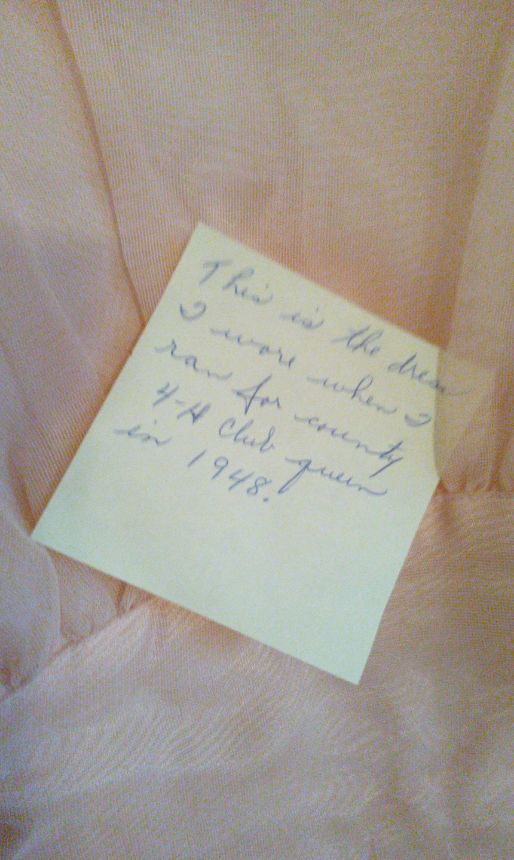 This is the dress
I wore when I
ran for county
4-H Club queen
in 1948.